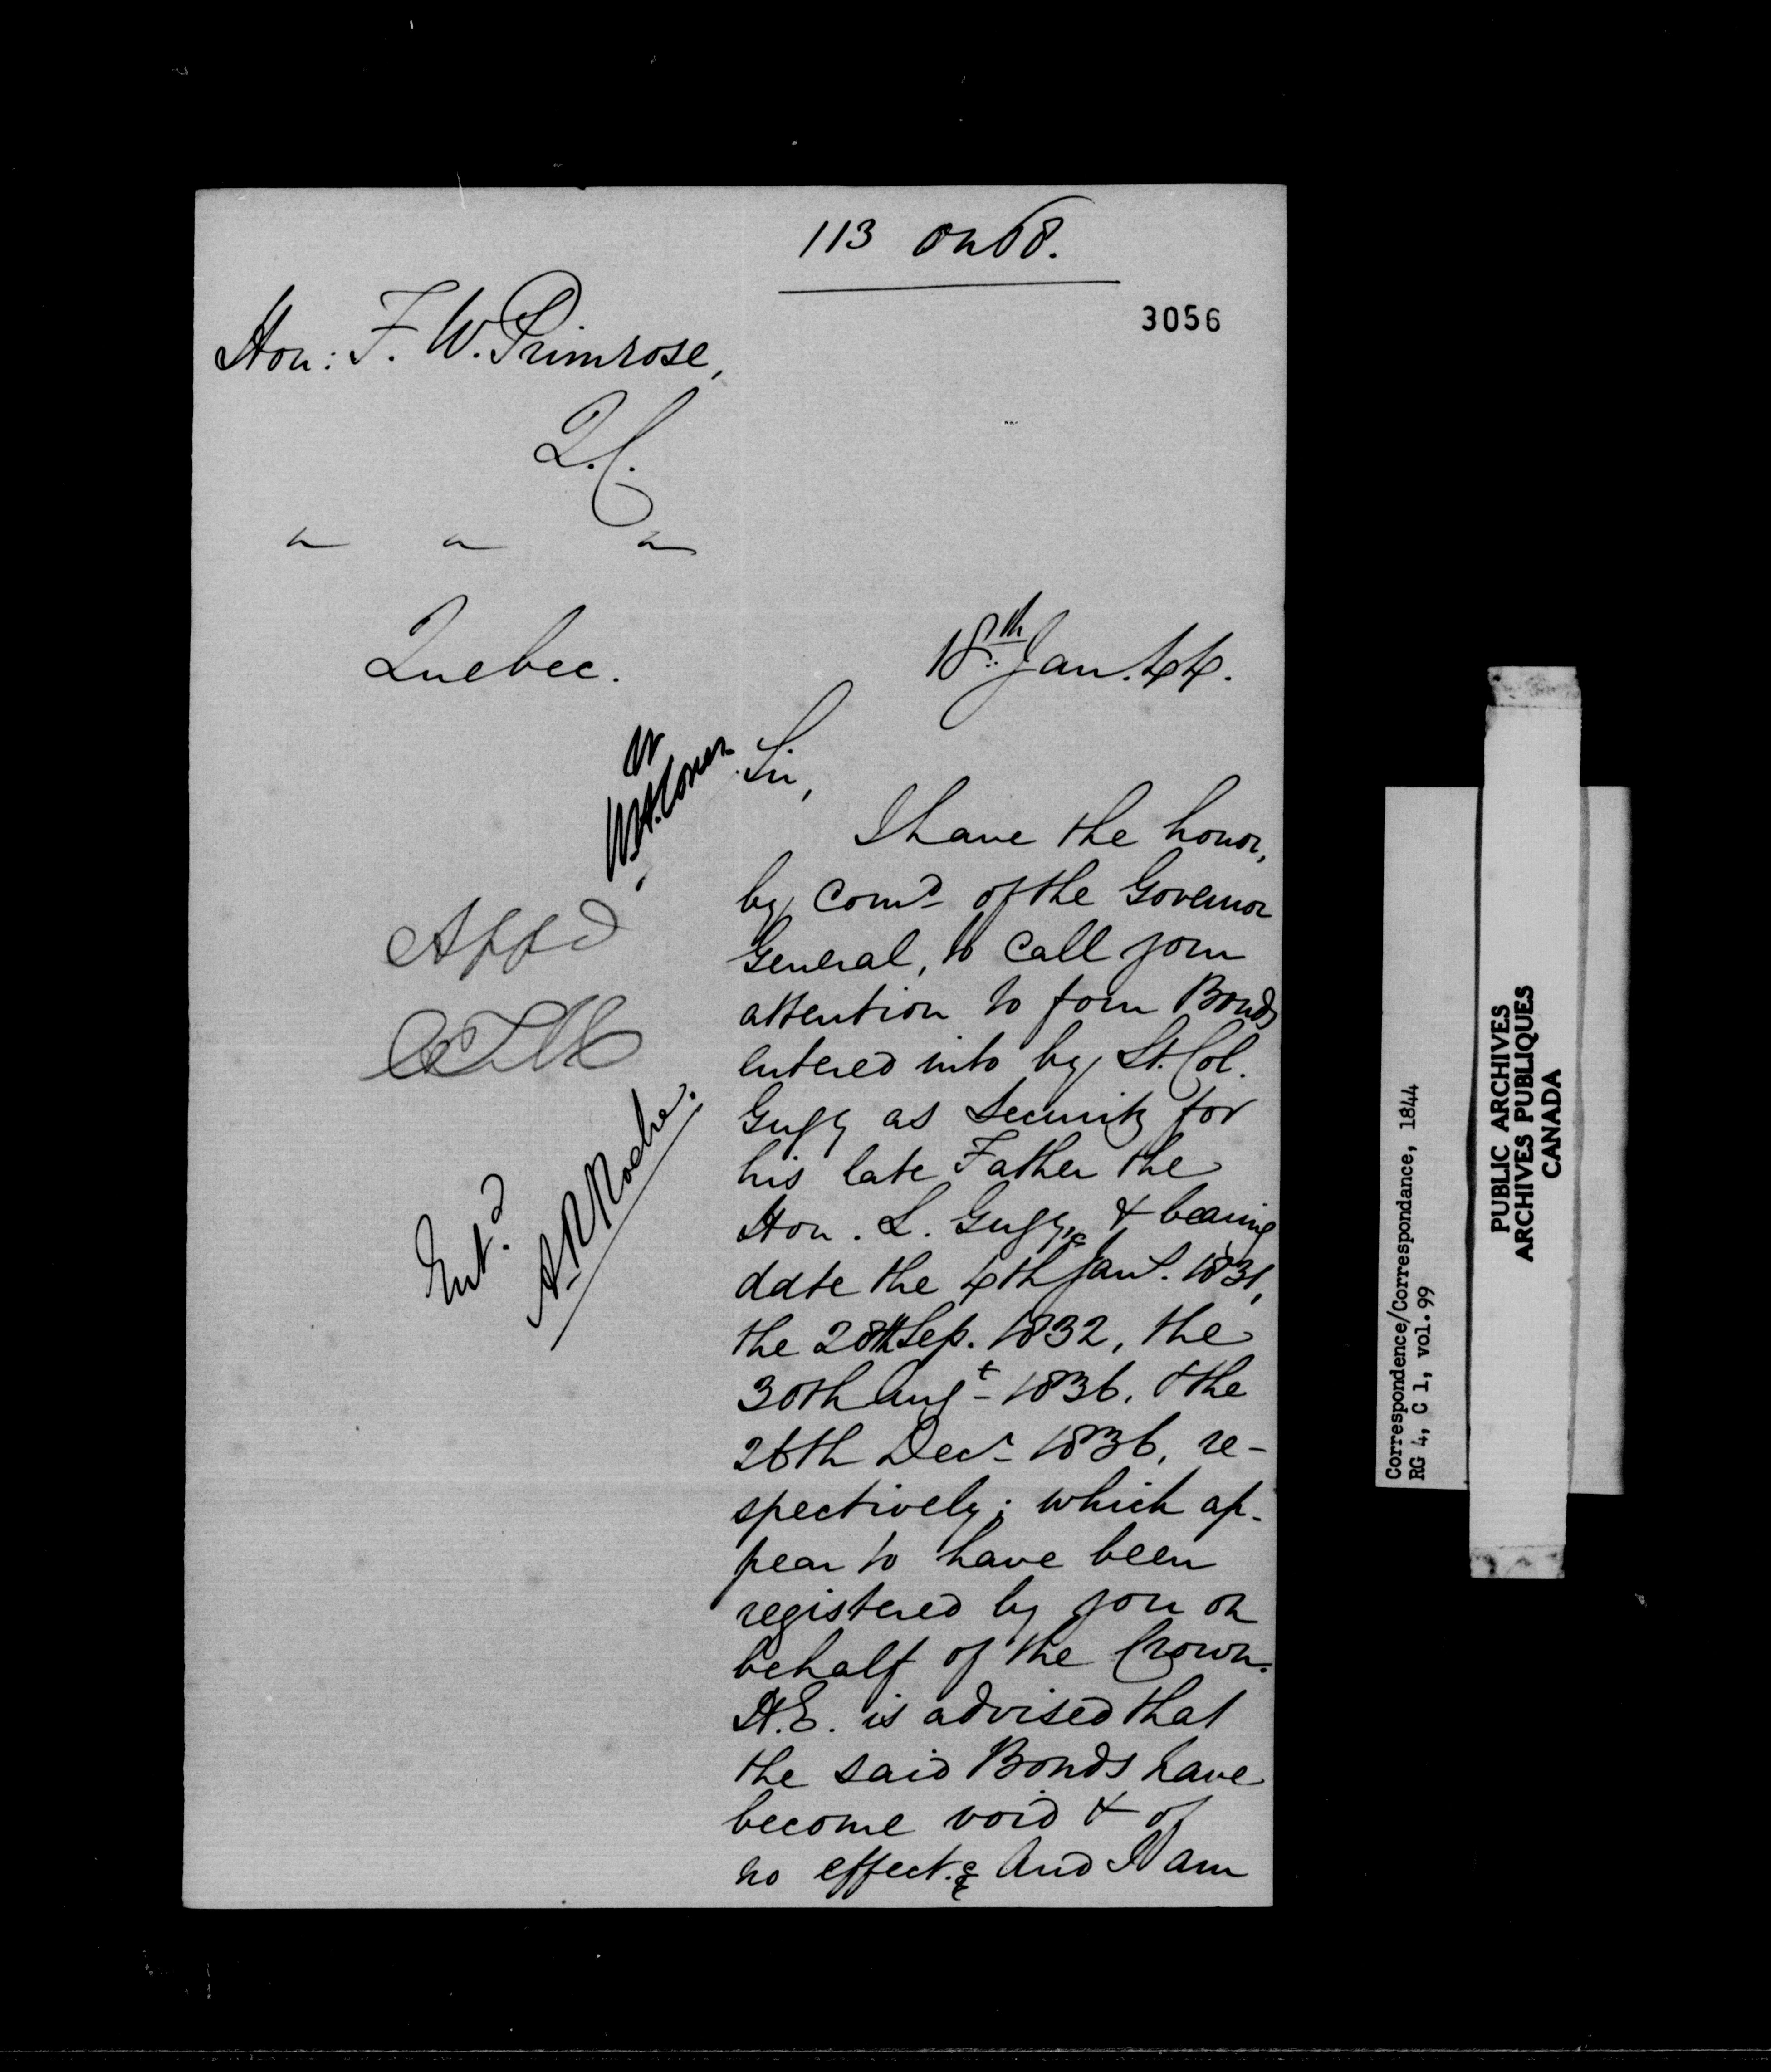 113 on 68.
3056
Hon: F. W. Primrose,
Q.C.
Quebec.
18th Jan. 44.
Sir,
I have the honor,
by Comd of the Governor
General, to call your
attention to four Bonds
entered into by Lt. Col.
Gugy as Security for
his late Father the
Hon. L. Gugy, & bearing
date the 4th Jany. 1831,
the 28th Sep. 1832, the
30th Augt 1836, & the
26th Decr 1836, re-
spectively; which ap-
pear to have been
registered by you on
behalf of the Crown.
H.E. is advised that
the said Bonds have
become void & of
no effect. & And I am
Appd
Entd.
A. R. Roche.
Correspondence/Correspondance, 1844
RG 4, C 1, vol. 99
PUBLIC ARCHIVES
ARCHIVES PUBLIQUES
CANADA